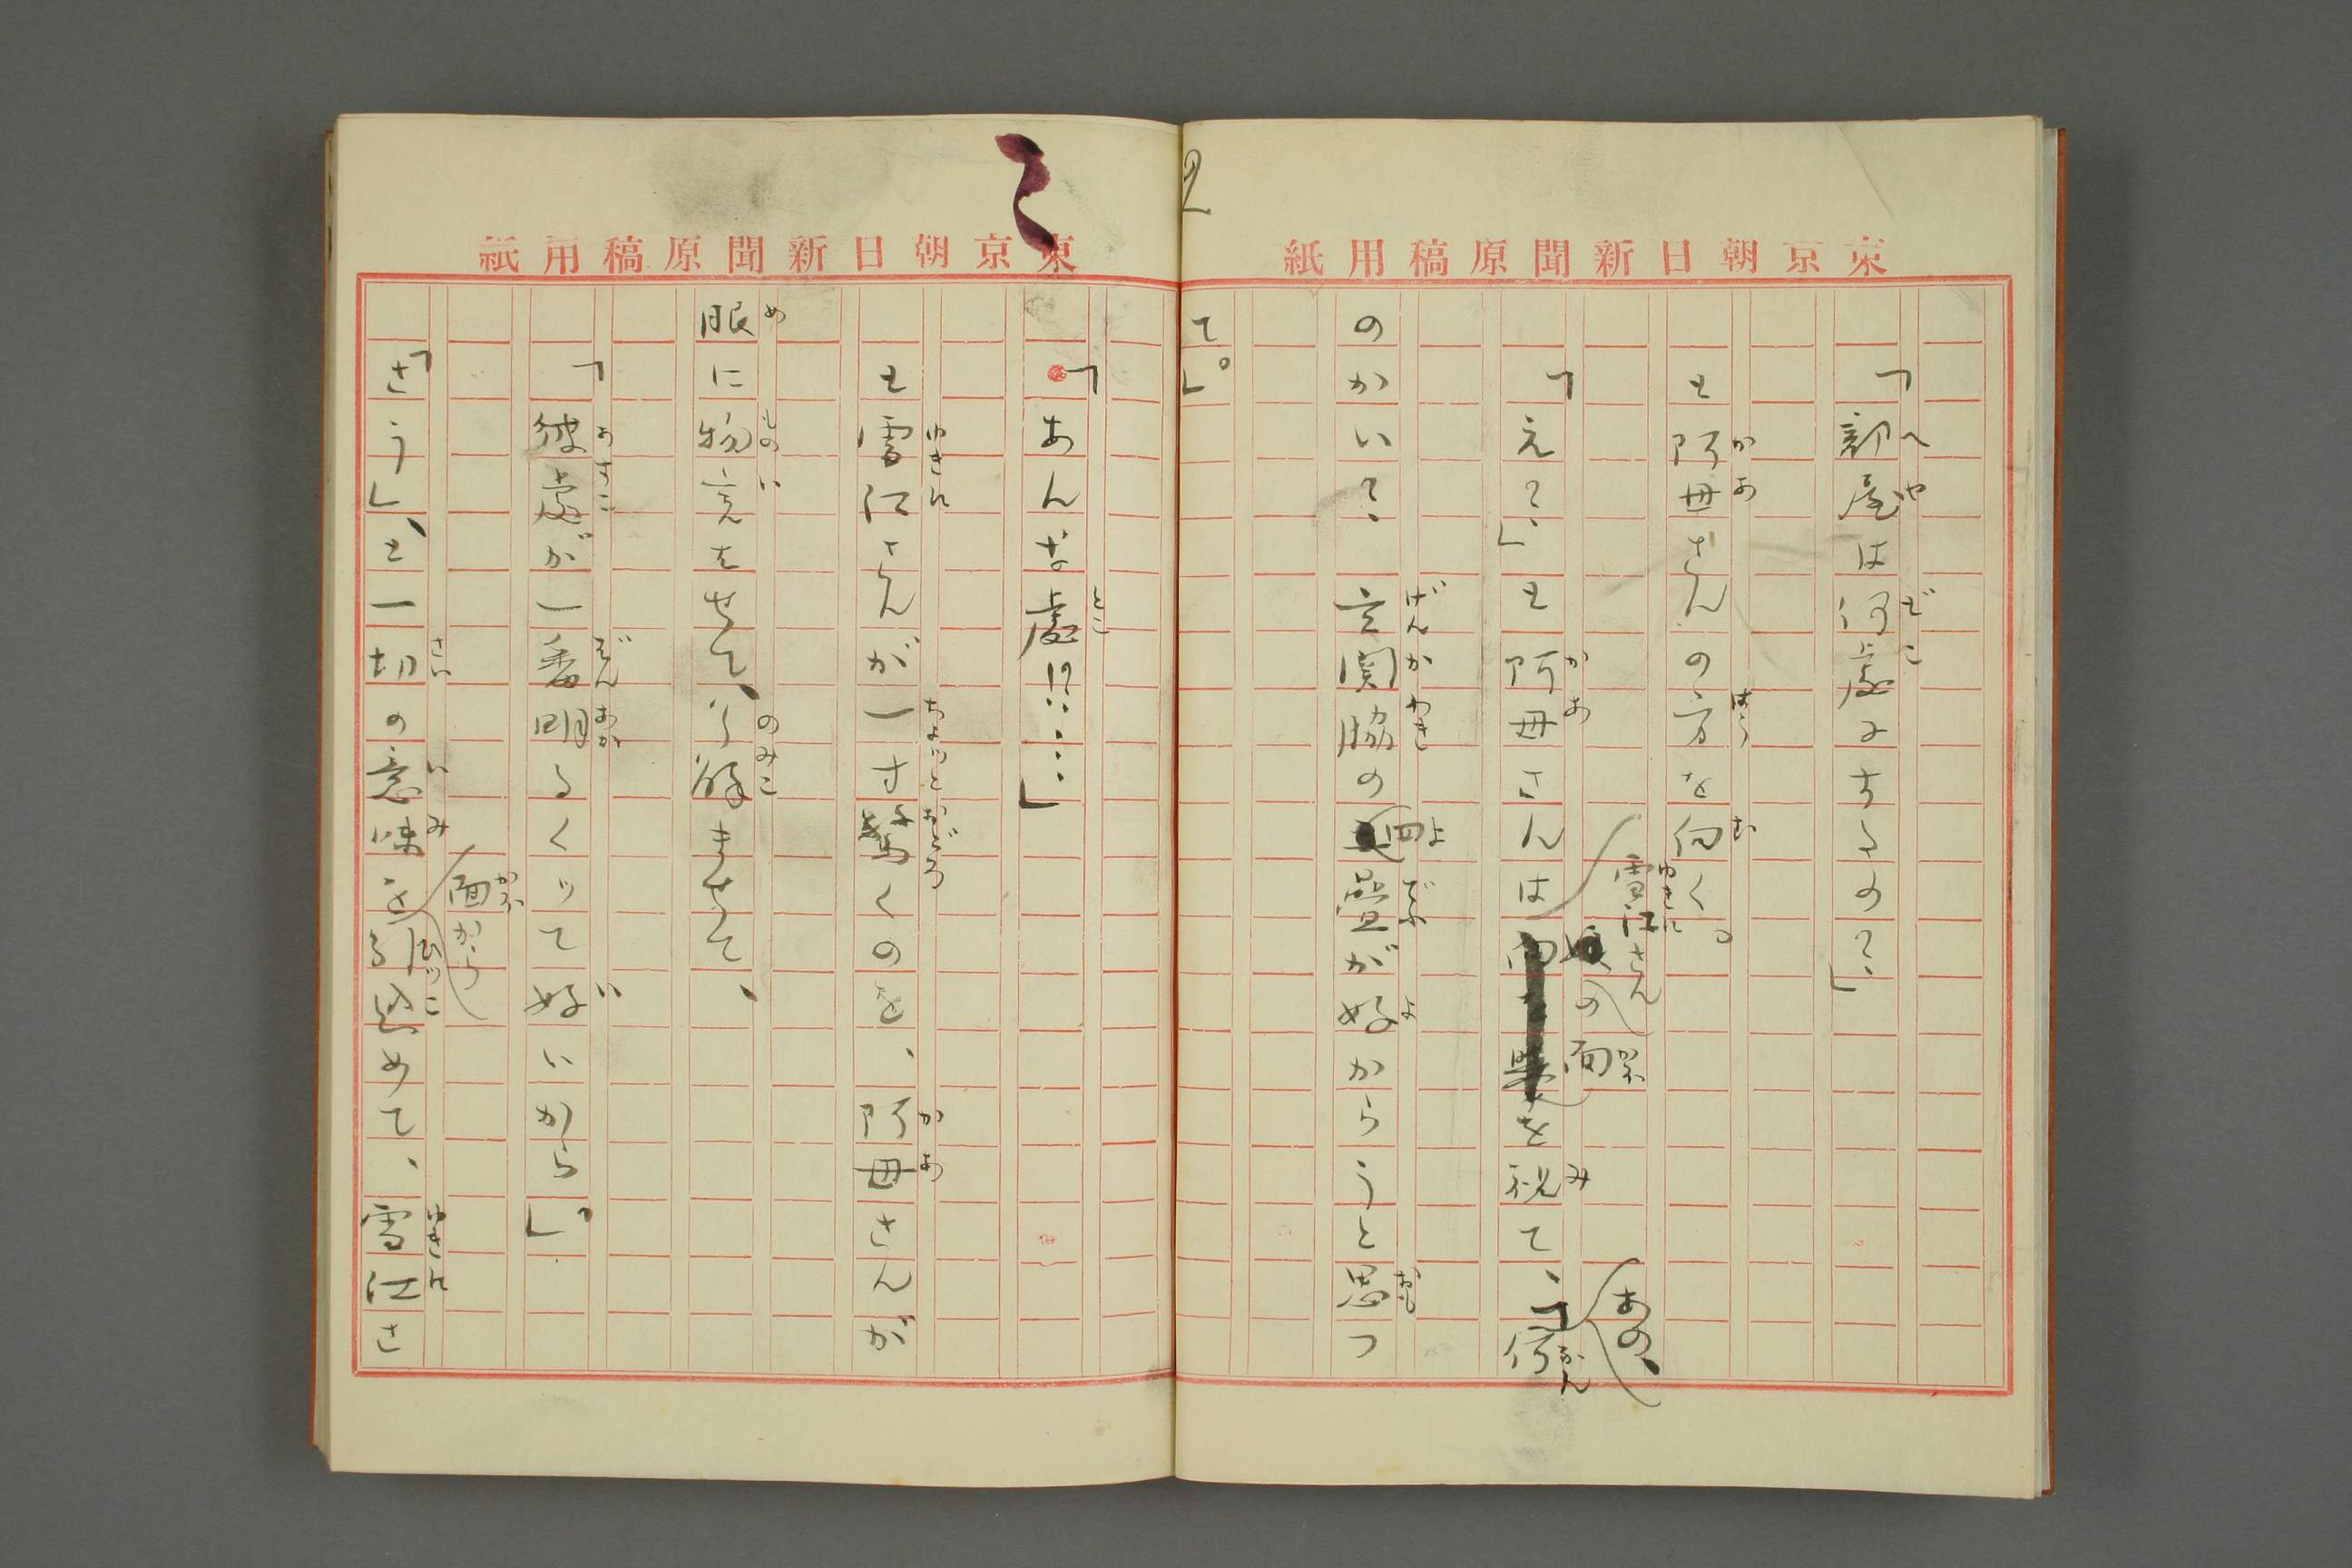 2
東京朝日新聞原稿用紙
「部屋は何處にするの？」
と阿母さんの方を向く。
「え？」と阿母さんは雪江さんの面を視て、「あの、何
のかい？　玄関脇の四畳が好からうと思つ
て。」
東京朝日新聞原稿用紙
「あんな處！？……」
と雪江さんが一寸驚くのを、阿母さんが
眼に物言はせて、了解ませて、
「彼處が一番明るくッて好いから」。
「さう」、と一切の意味を面から引込めて、雪江さ